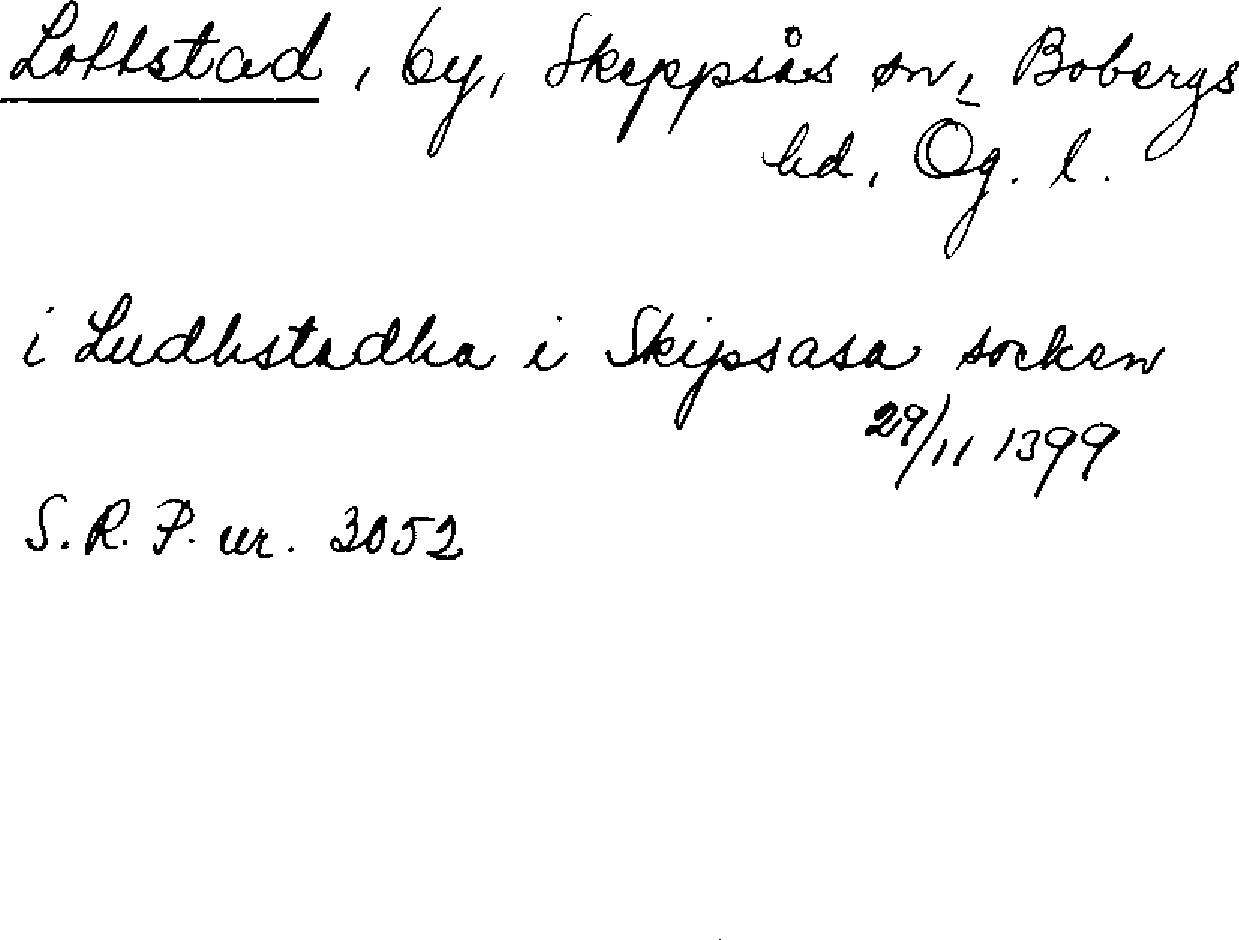 Lottstad, by, Skeppsås sn, Bobergs
hd, Ög. l.
i Ludhstadha i Skipsasa socken
29/11 1399
S.R.P. nr. 3052